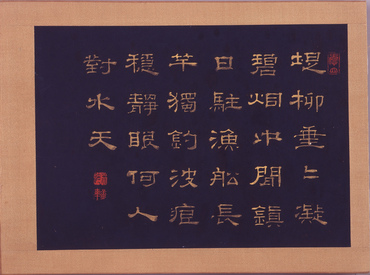 堤柳垂々凝
碧烟中間鎮
日駐漁船長
竿獨釣波痕
穩靜眼何人
對水天